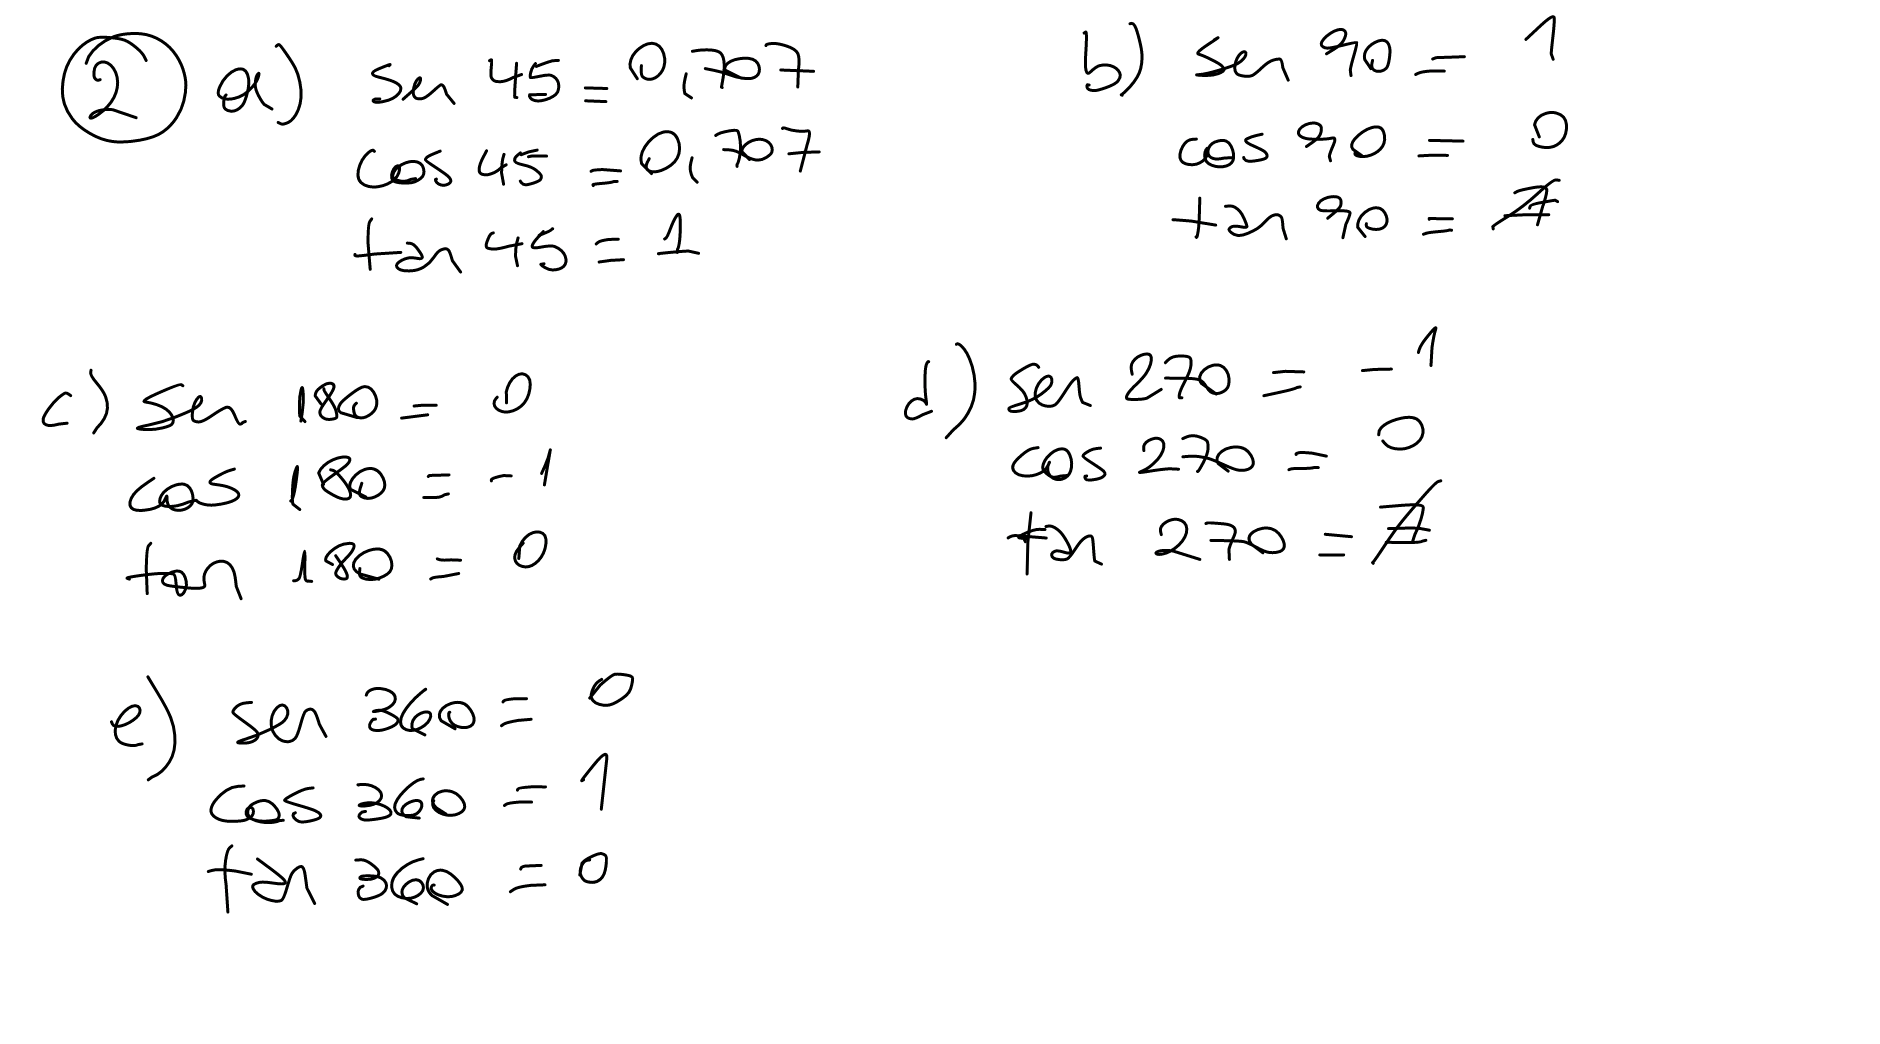 2 a) sen 45 = 0,707
cos 45 = 0,707
tan 45 = 1
b) sen 90 = 1
cos 90 = 0
tan 90 = ∄
c) sen 180 = 0
cos 180 = -1
tan 180 = 0
d) sen 270 = -1
cos 270 = 0
tan 270 = ∄
e) sen 360 = 0
cos 360 = 1
tan 360 = 0